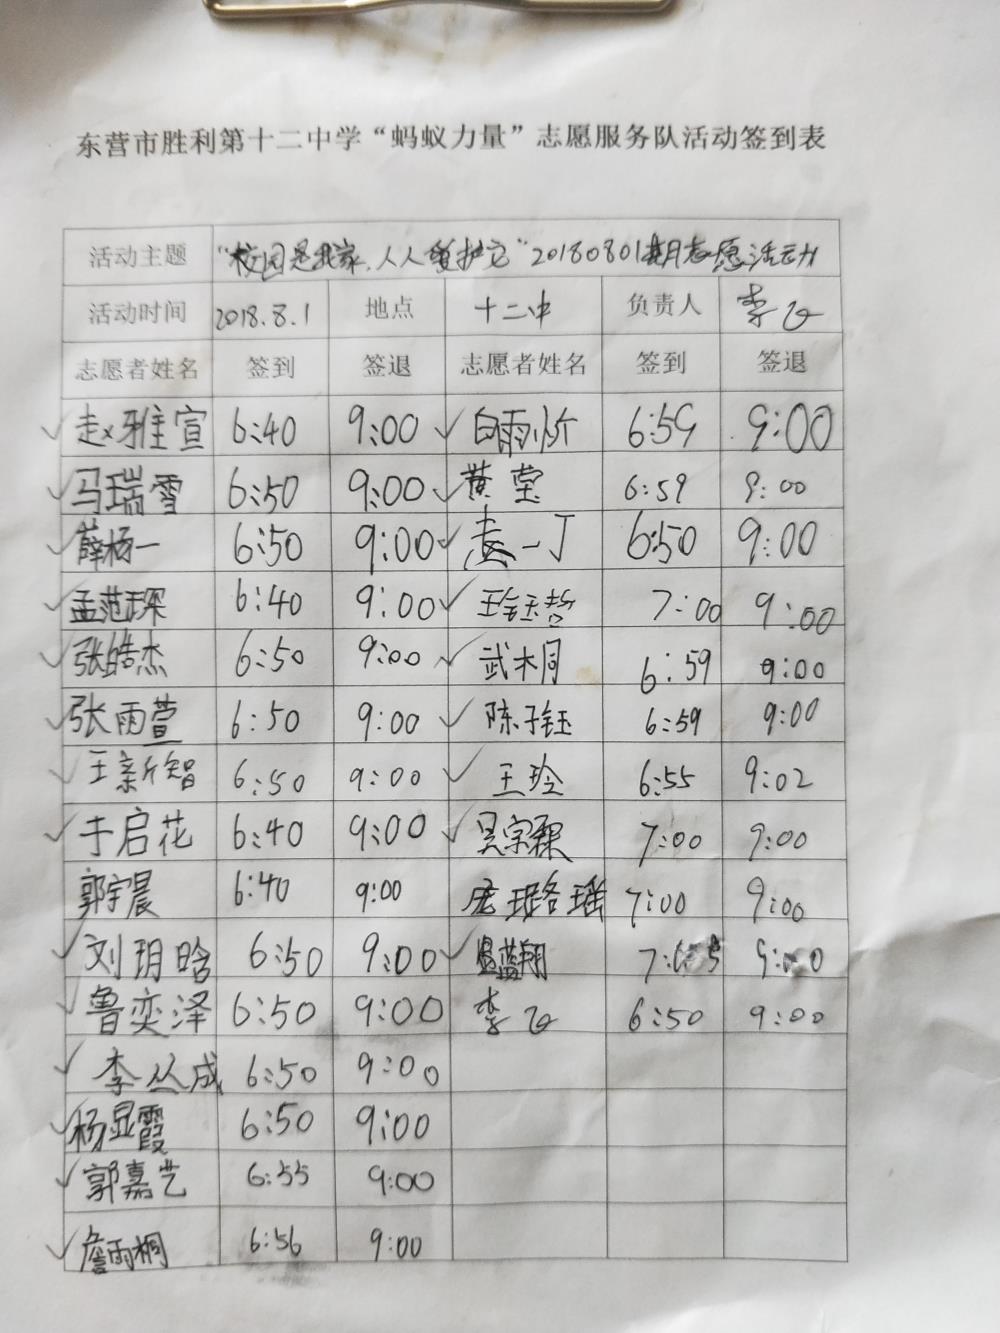 东营市胜利第十二中学“蚂蚁力量”志愿服务队活动签到表
活动主题 “校园是我家,人人爱护它”20180801期志愿活动
活动时间 2018.8.1 地点 十二中 负责人 李飞
志愿者姓名 签到 签退 志愿者姓名 签到 签退
赵雅宣 6:40 9:00 白雨 6:59 9:00
马瑞雪 6:50 9:00 黄莹 6:59 9:00
薛杨一 6:50 9:00 袁一丁 6:50 9:00
孟范琛 6:40 9:00 7:00 9:00
张皓杰 6:50 9:00 武木桐 6:59 9:00
张雨萱 6:50 9:00 陈子钰 6:59 9:00
王新智 6:50 9:00 王玲 6:55 9:02
于启花 6:40 9:00 吴宗霖 7:00 9:00
郭宇晨 6:40 9:00 7:00 9:00
刘玥晗 6:50 9:00 蓝翔
鲁奕泽 6:50 9:00 李飞 6:50 9:00
李丛成 6:50 9:00
杨显霞 6:50 9:00
郭嘉艺 6:55 9:00
詹雨桐 6:56 9:00